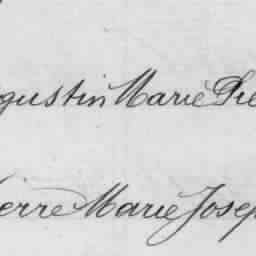 gustin Marie Pie
ierre Marie Josep